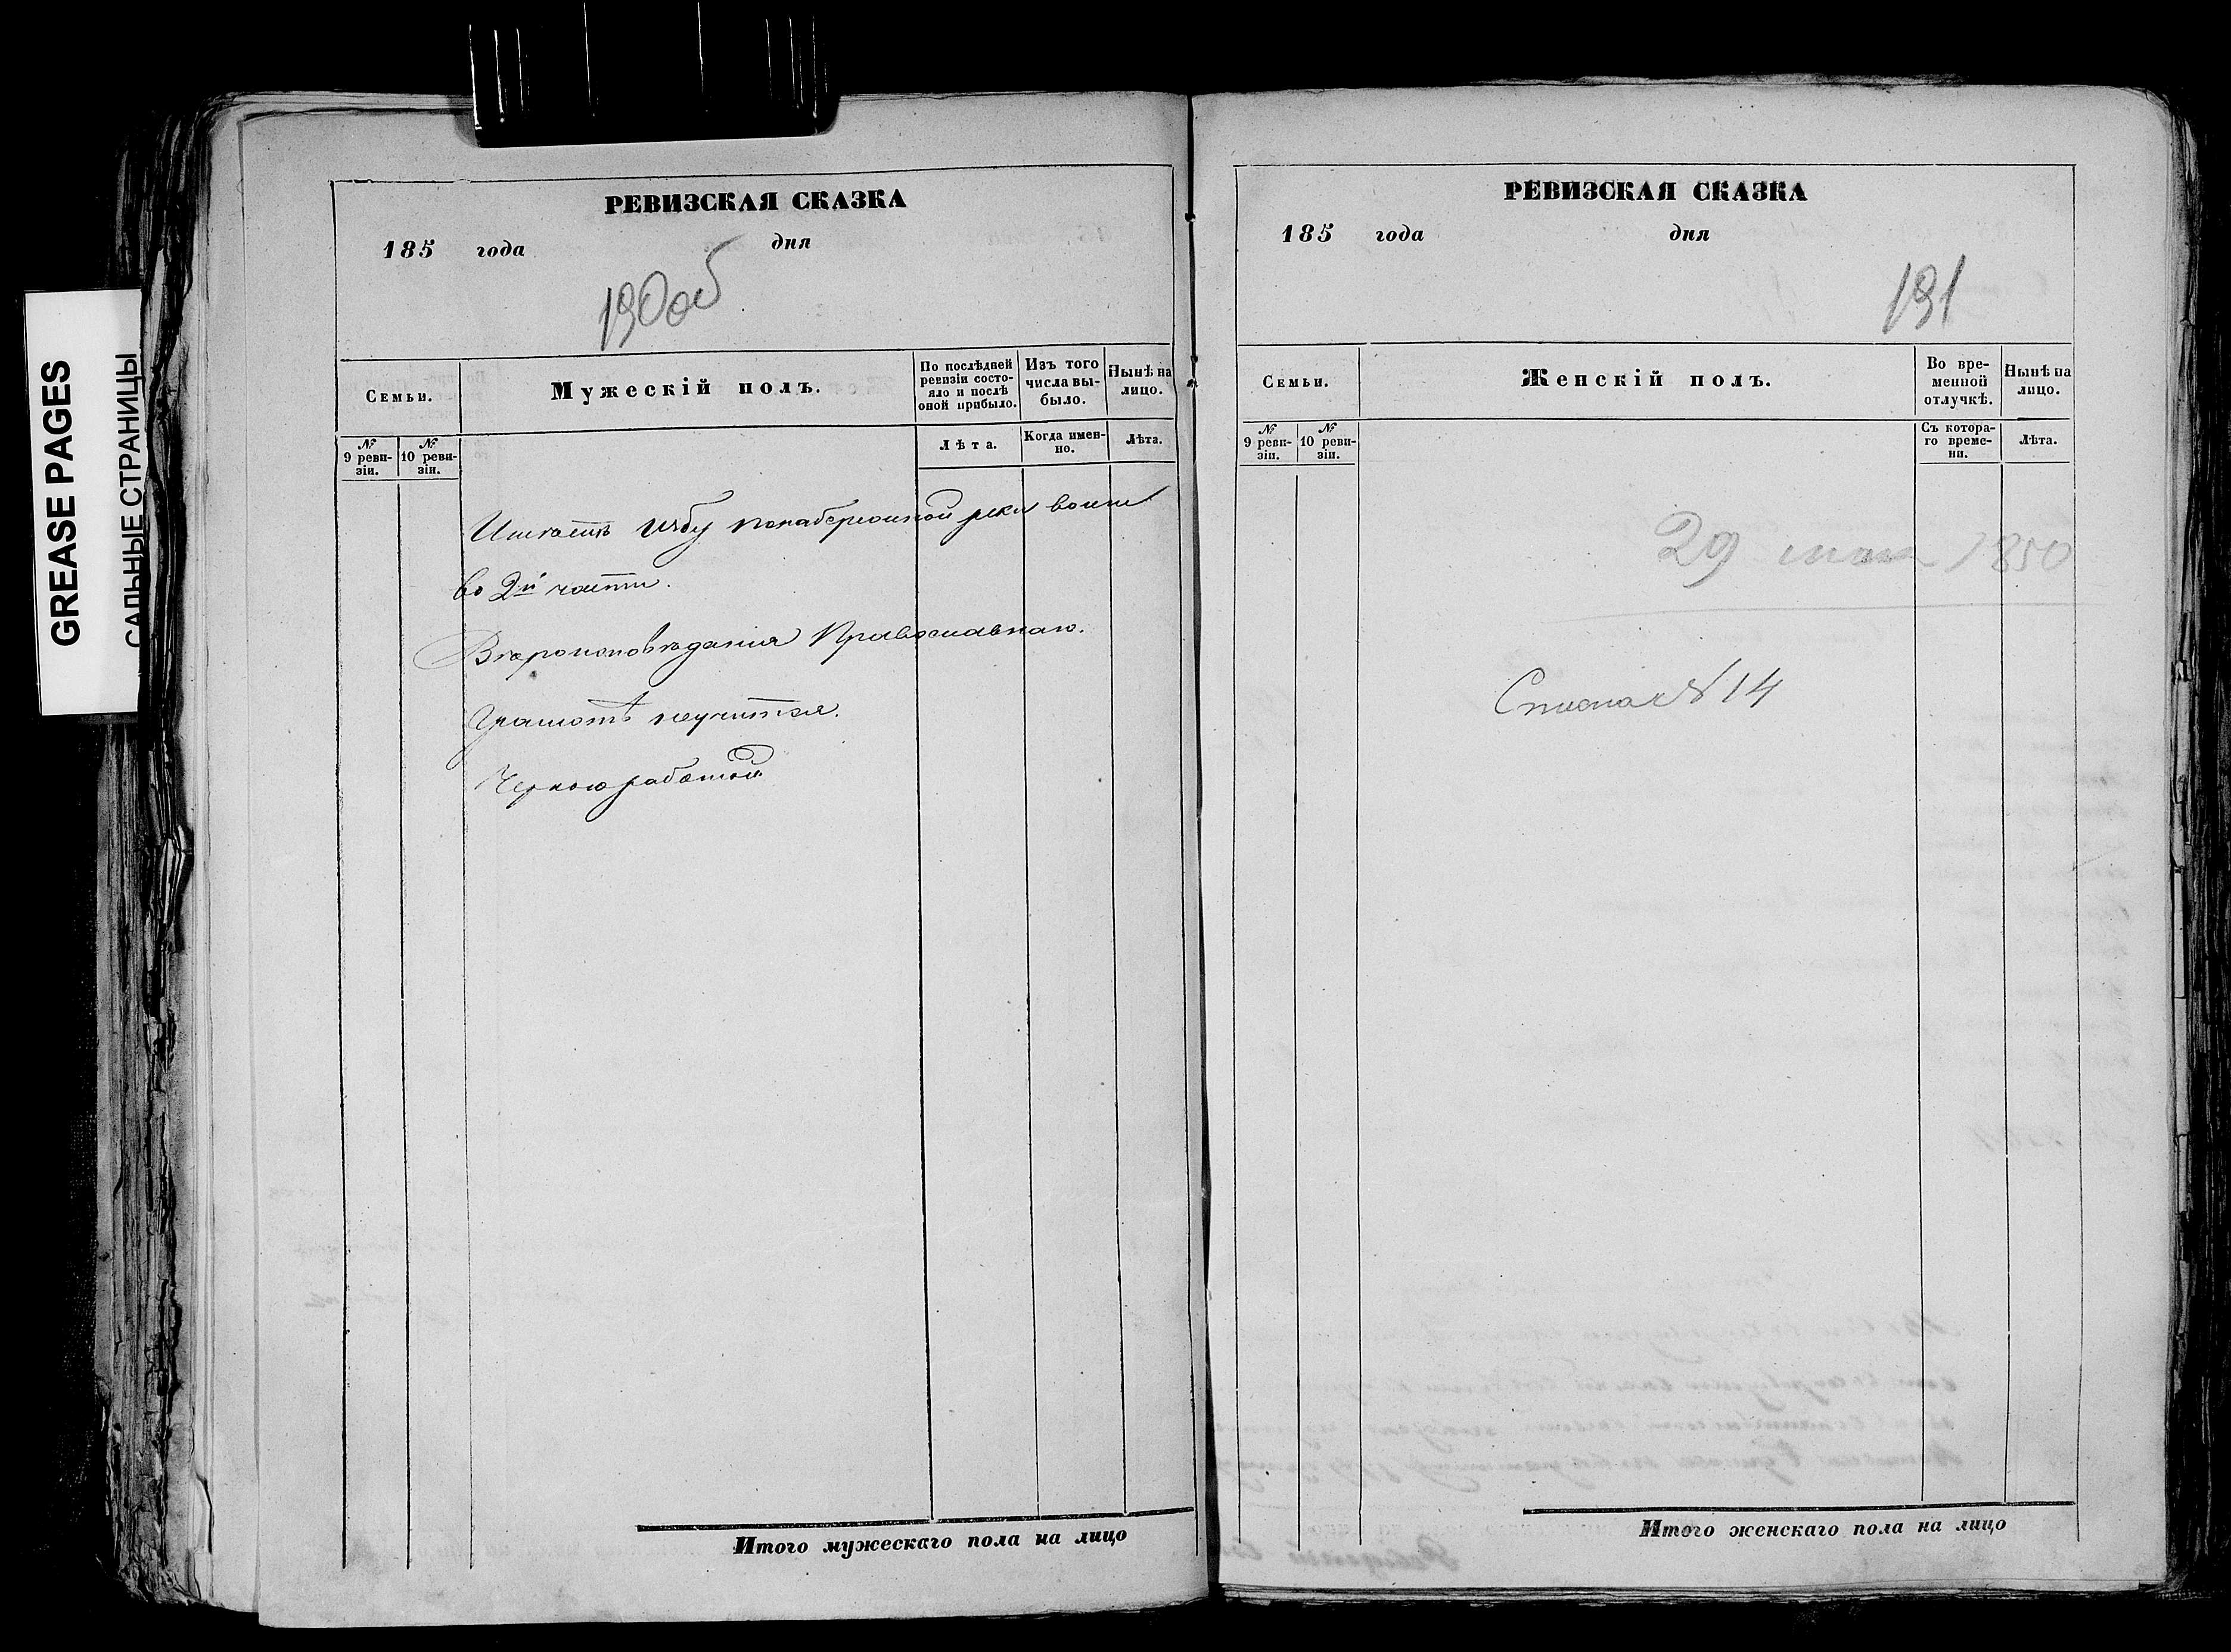 GREASE PAGES
САЛЬНЫЕ СТРАНИЦЫ
РЕВИЗСКАЯ СКАЗКА
185 года дня
190об
Семьи.
Мужескій полъ.
По послѣдней ревизіи состо-
яло и послѣ оной прибыло.
Изъ того числа вы-
было.
Нынѣ на лицо.
№ 9 реви-
зіи.
№ 10 реви-
зіи.
Лѣта.
Когда имен-
но.
Лѣта.
Имѣетъ избу понабережной реки
во 2й части.
Вѣроисповѣданія Православнаго.
Грамотѣ неучится.
Черною работой
Итого мужескаго пола на лицо
РЕВИЗСКАЯ СКАЗКА
185 года дня
191
Семьи.
Женскій полъ.
Во вре-
менной
отлучкѣ.
Нынѣ на
лицо.
№ 9 реви-
зіи.
№ 10 реви-
зіи.
Съ котора-
го време-
ни.
Лѣта.
29 мая 1850
№ 14
Итого женскаго пола на лицо